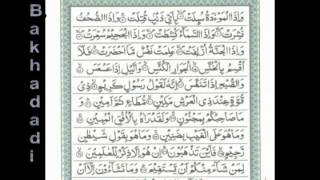 B
akhadadi
وَإِذَا الْمَوْءُۥدَةُ سُئِلَتْ بِأَيِّ ذَنْبٍ قُتِلَتْ وَإِذَا الصُّحُفُ
نُشِرَتْ وَإِذَا السَّمَآءُ كُشِطَتْ وَإِذَا الْجَحِيمُ سُعِّرَتْ
وَإِذَا الْجَنَّةُ أُزْلِفَتْ عَلِمَتْ نَفْسٌ مَّآ أَحْضَرَتْ فَلَآ
أُقْسِمُ بِالْخُنَّسِ الْجَوَارِ الْكُنَّسِ وَالَّيْلِ إِذَا عَسْعَسَ
وَالصُّبْحِ إِذَا تَنَفَّسَ إِنَّهُۥ لَقَوْلُ رَسُولٍ كَرِيمٍ ذِى
قُوَّةٍ عِندَ ذِى الْعَرْشِ مَكِينٍ مُّطَاعٍ ثَمَّ أَمِينٍ
وَمَا صَاحِبُكُم بِمَجْنُونٍ وَلَقَدْ رَءَاهُ بِالْأُفُقِ الْمُبِينِ
وَمَا هُوَ عَلَى الْغَيْبِ بِضَنِينٍ وَمَا هُوَ بِقَوْلِ شَيْطَٰنٍ
رَّجِيمٍ فَأَيْنَ تَذْهَبُونَ إِنْ هُوَ إِلَّا ذِكْرٌ لِّلْعَٰلَمِينَ
لِمَن شَآءَ مِنكُمْ أَن يَسْتَقِيمَ وَمَا تَشَآءُونَ إِلَّآ أَن